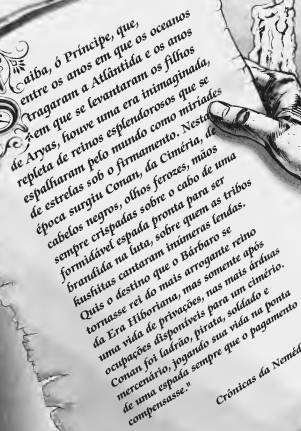 aiba, ó Príncipe, que,
entre os anos em que os oceanos
tragaram a Atlântida e os anos
em que se levantaram os filhos
de Aryas, houve uma era inimaginada,
repleta de reinos esplendorosos que se
espalharam pelo mundo como miríades
de estrelas sob o firmamento. Nesta
época surgiu Conan, da Ciméria, de
cabelos negros, olhos ferozes, mãos
sempre crispadas sobre o cabo de uma
formidável espada pronta para ser
brandida na luta, sobre quem as tribos
kushitas cantaram inúmeras lendas.
Quis o destino que o Bárbaro se
tornasse rei do mais arrogante reino
da Era Hiboriana, mas somente após
uma vida de privações, nas mais árduas
ocupações disponíveis para um cimério.
Conan foi ladrão, pirata, soldado e
mercenário, jogando sua vida na ponta
de uma espada sempre que o pagamento
compensasse."
Crônicas da Neméd